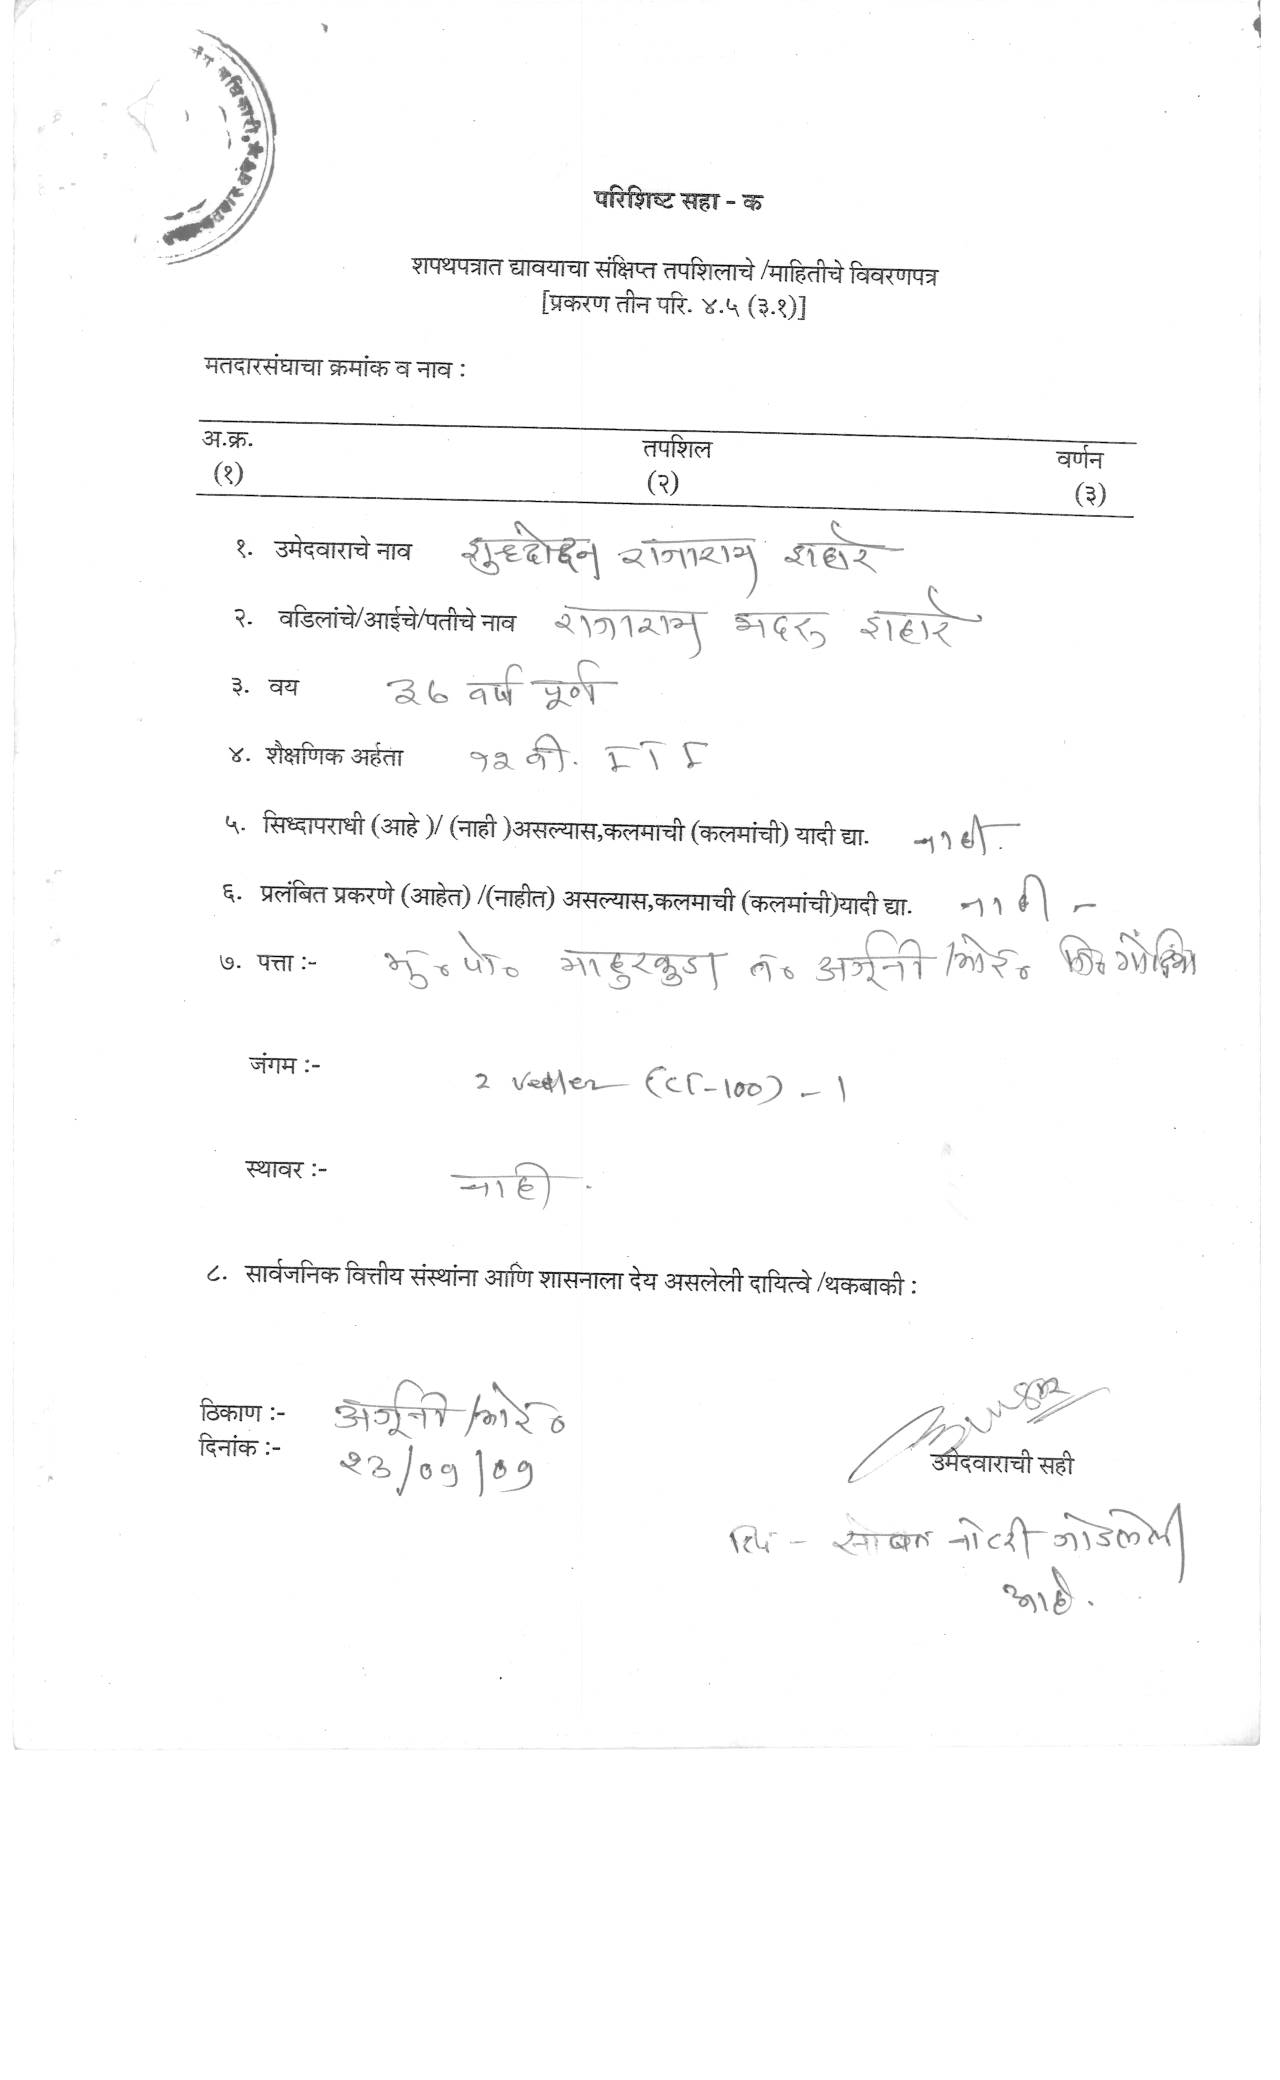 अधिकारी,
परिशिष्ट सहा - क
शपथपत्रात द्यावयाचा संक्षिप्त तपशिलाचे /माहितीचे विवरणपत्र
[प्रकरण तीन परि. ४.५ (३.१)]
मतदारसंघाचा क्रमांक व नाव :
अ.क्र. तपशिल वर्णन
(१) (२) (३)
१. उमेदवाराचे नाव शुध्दोदन राजाराम शहारे
२. वडिलांचे/आईचे/पतीचे नाव राजाराम भदरु शहारे
३. वय ३७ वर्ष पूर्ण
४. शैक्षणिक अर्हता १२ वी. I T I
५. सिध्दापराधी (आहे )/ (नाही )असल्यास,कलमाची (कलमांची) यादी द्या. नाही.
६. प्रलंबित प्रकरणे (आहेत) /(नाहीत) असल्यास,कलमाची (कलमांची)यादी द्या. नाही -
७. पत्ता :- मु. पो. माहुरकुडा त. अर्जूनी /मोर. जि. गोंदिया
जंगम :- 2 (CT-100) - 1
स्थावर :- नाही .
८. सार्वजनिक वित्तीय संस्थांना आणि शासनाला देय असलेली दायित्वे /थकबाकी :
ठिकाण :- अर्जूनी /मोर.
दिनांक :- २३/०९/०९
उमेदवाराची सही
टिप - सोबत नोटरी जोडलेली
आहे.